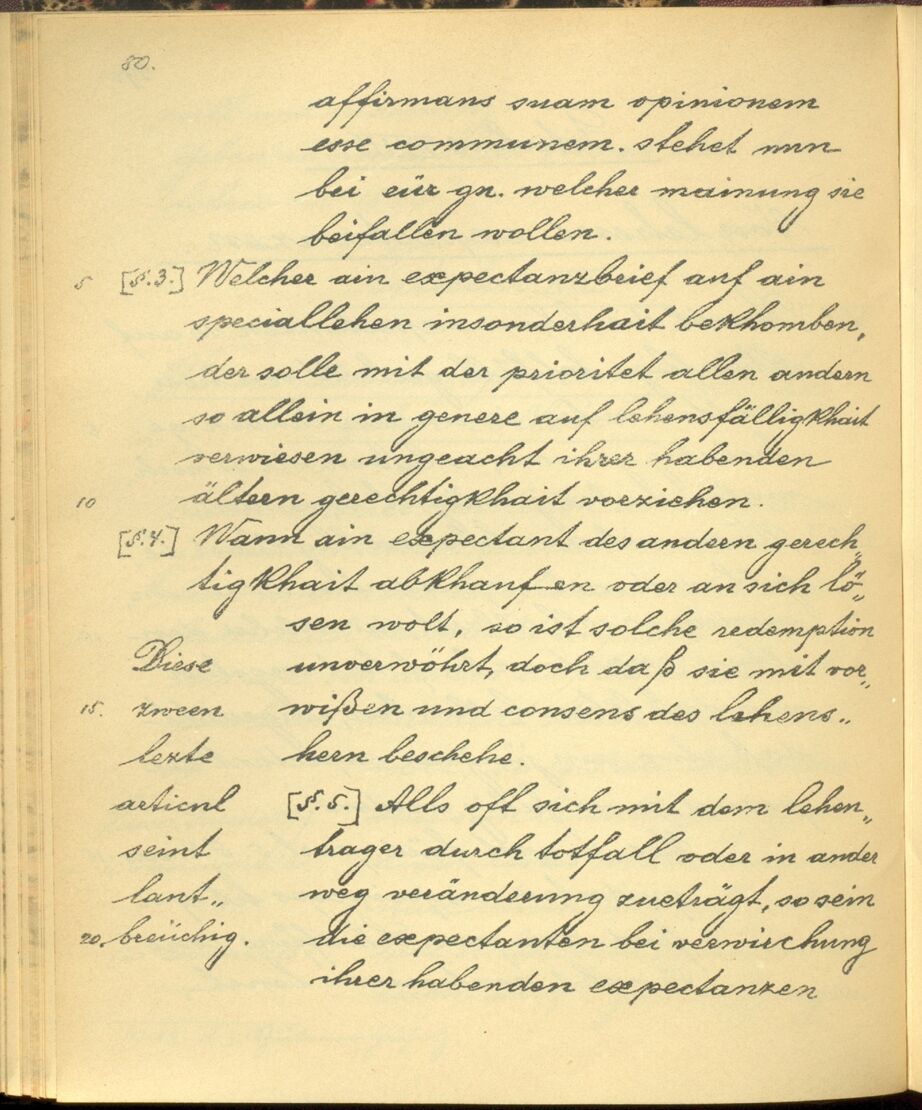 80.
affirmans suam opinionem
esse communem. stehet nun
bei eür gn. welcher mainung sie
beifallen wollen.
5 [§.3.] Welcher ain expectanzbrief auf ain
speciallehen insonderhait bekhomben,
der solle mit der prioritet allen andern
so allein in genere auf lehensfälligkhait
verwiesen ungeacht ihrer habenden
10 ältern gerechtigkhait vorziehen.
[§.4.] Wann ain expectant des andern gerech„
tigkhait abkhaufen oder an sich lö„
sen wolt, so ist solche redemption
Diese unverwöhrt, doch daß sie mit vor„
15. zween wißen und consens des lehens„
lezte hern beschehe.
articul [§.5.] Alls oft sich mit dem lehen„
seint trager durch totfall oder in ander
lant„ weg veränderung zueträgt, so sein
20. breüchig. die expectanten bei verwirchung
ihrer habenden expectanzen